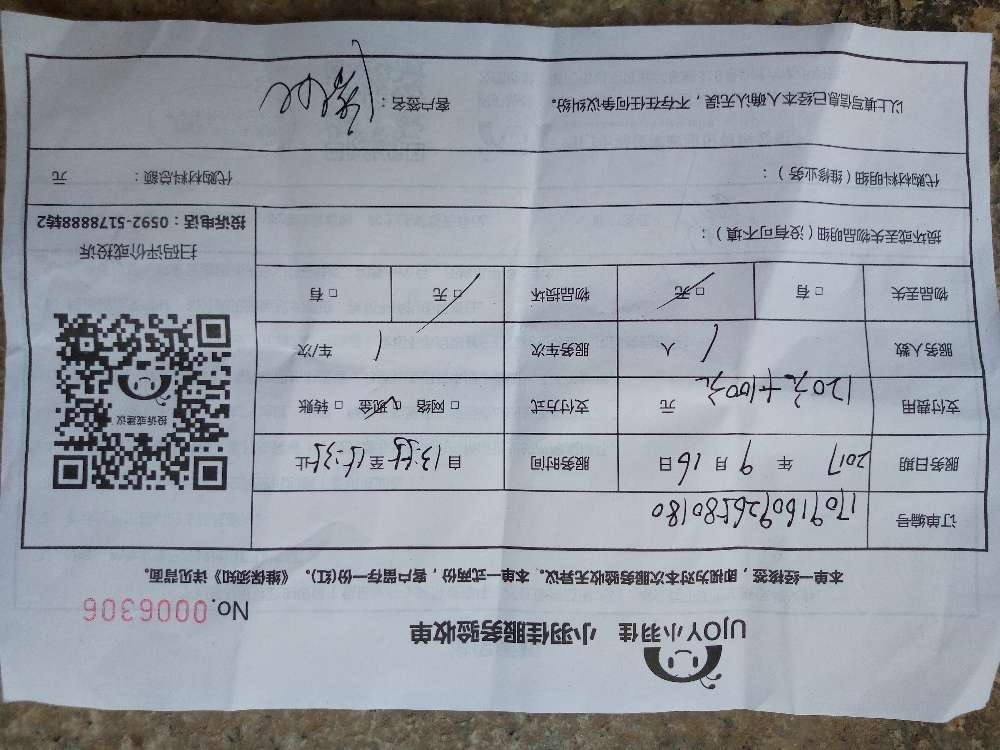 UJOY小羽佳 小羽佳服务验收单
No.0006306
本单一经接签，即视为对本次服务验收无异议。本单一式两份，客户留存一份(红)。《维保须知》详见背面。
订单编号 1709160926580180
服务日期 2017 年 9 月 16 日 服务时间 自 13:55 至 15:35 止
支付费用 120元+100元 元 支付方式 □ 网络 □ 现金 □ 转账
服务人数 1 人 服务车次 1 车/次
物品丢失 □ 有 □ 无 物品损坏 □ 无 □ 有
投诉或建议
扫码评价或投诉
投诉电话：0592-5178888转2
损坏或丢失物品明细（没有可不填）：
代购材料明细（维修业务）： 代购材料总额： 元
以上填写信息已经本人确认无误，不存在任何争议纠纷。 客户签名：